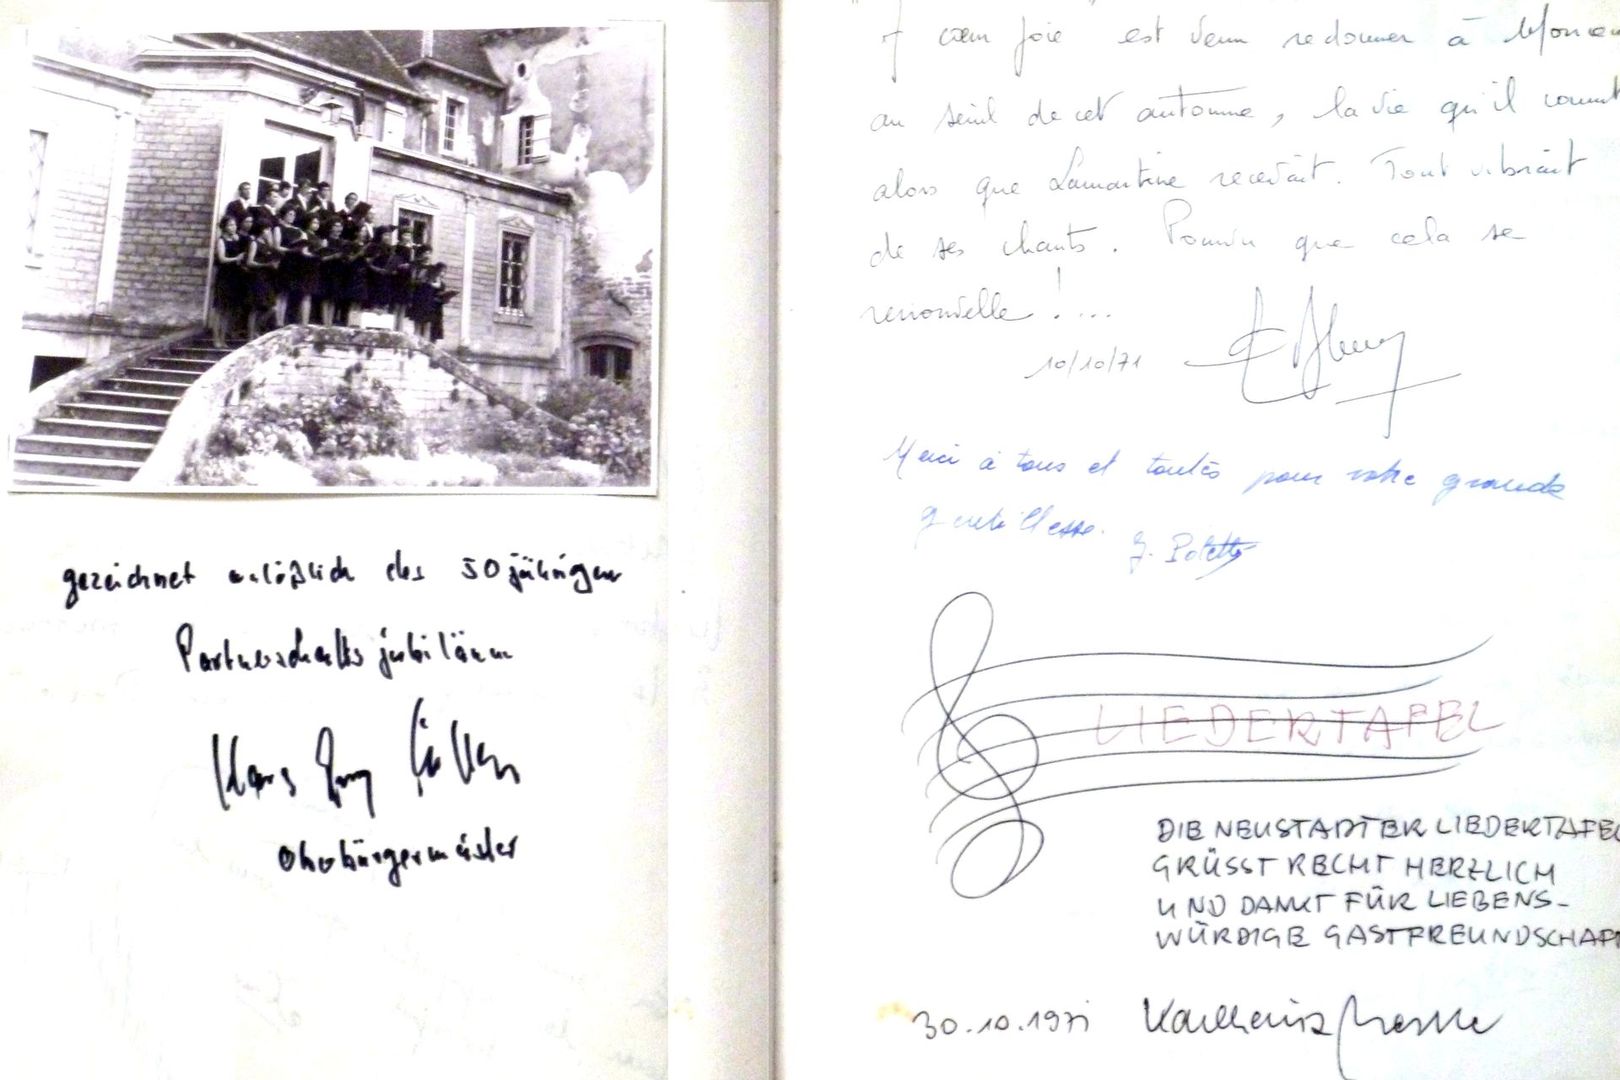 gezeichnet anläßlich des 50 jährigen
Partnerschaftsjubiläum
Hans
Oberbürgermeister
" A cœur joie " est venu redonner à
au seuil de cet automne, la vie qu'il connut
alors que Lamartine recevait. Tout vibrait
de ses chants. Pourvu que cela se
renouvelle ! ...
10/10/71
Merci à tous et toutes pour votre grande
gentillesse.
LIEDERTAFEL
DIE NEUSTADTER LIEDERTAFEL
GRÜSST RECHT HERZLICH
UND DANKT FÜR LIEBENS-
WÜRDIGE GASTFREUNDSCHAFT
30.10.1971 Karlheinz